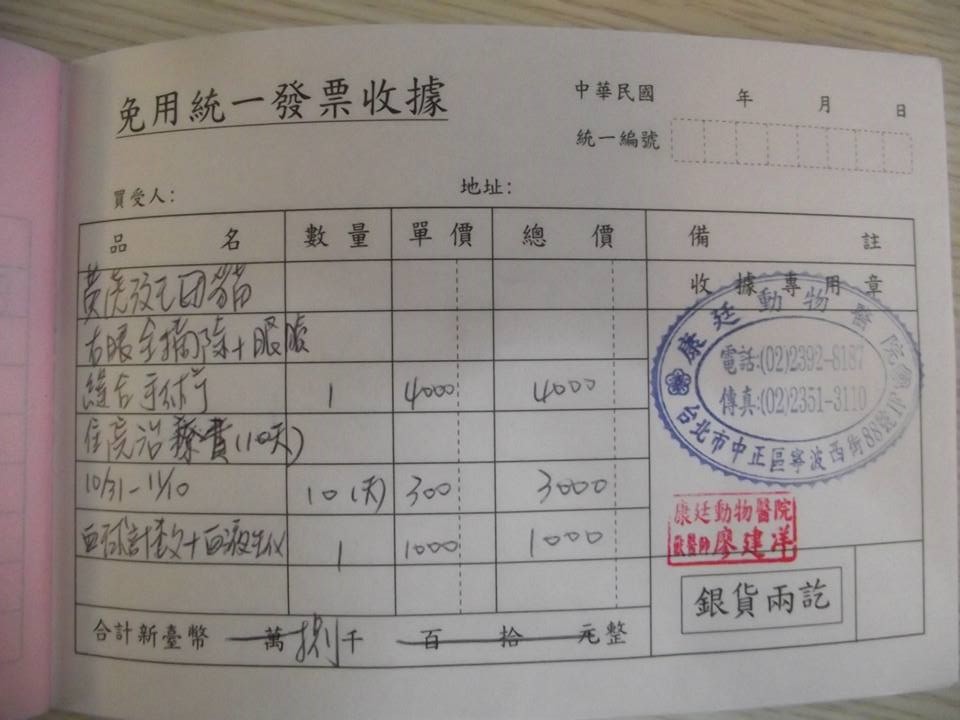 免用統一發票收據
中華民國 年 月 日
統一編號
買受人: 地址:
品名 數量 單價 總價 備註
收據專用章
右眼全摘除+眼瞼
縫合手術 1 4000 4000
住院治療費(10天)
10/31-11/10 10(天) 300 3000
血球計數+血液生化 1 1000 1000
合計新臺幣 萬捌千 百 拾 元整
康廷動物醫院
電話:(02)2392-8187
傳真:(02)2351-3110
台北市中正區寧波西街88號
康廷動物醫院
獸醫師 廖建洋
銀貨兩訖